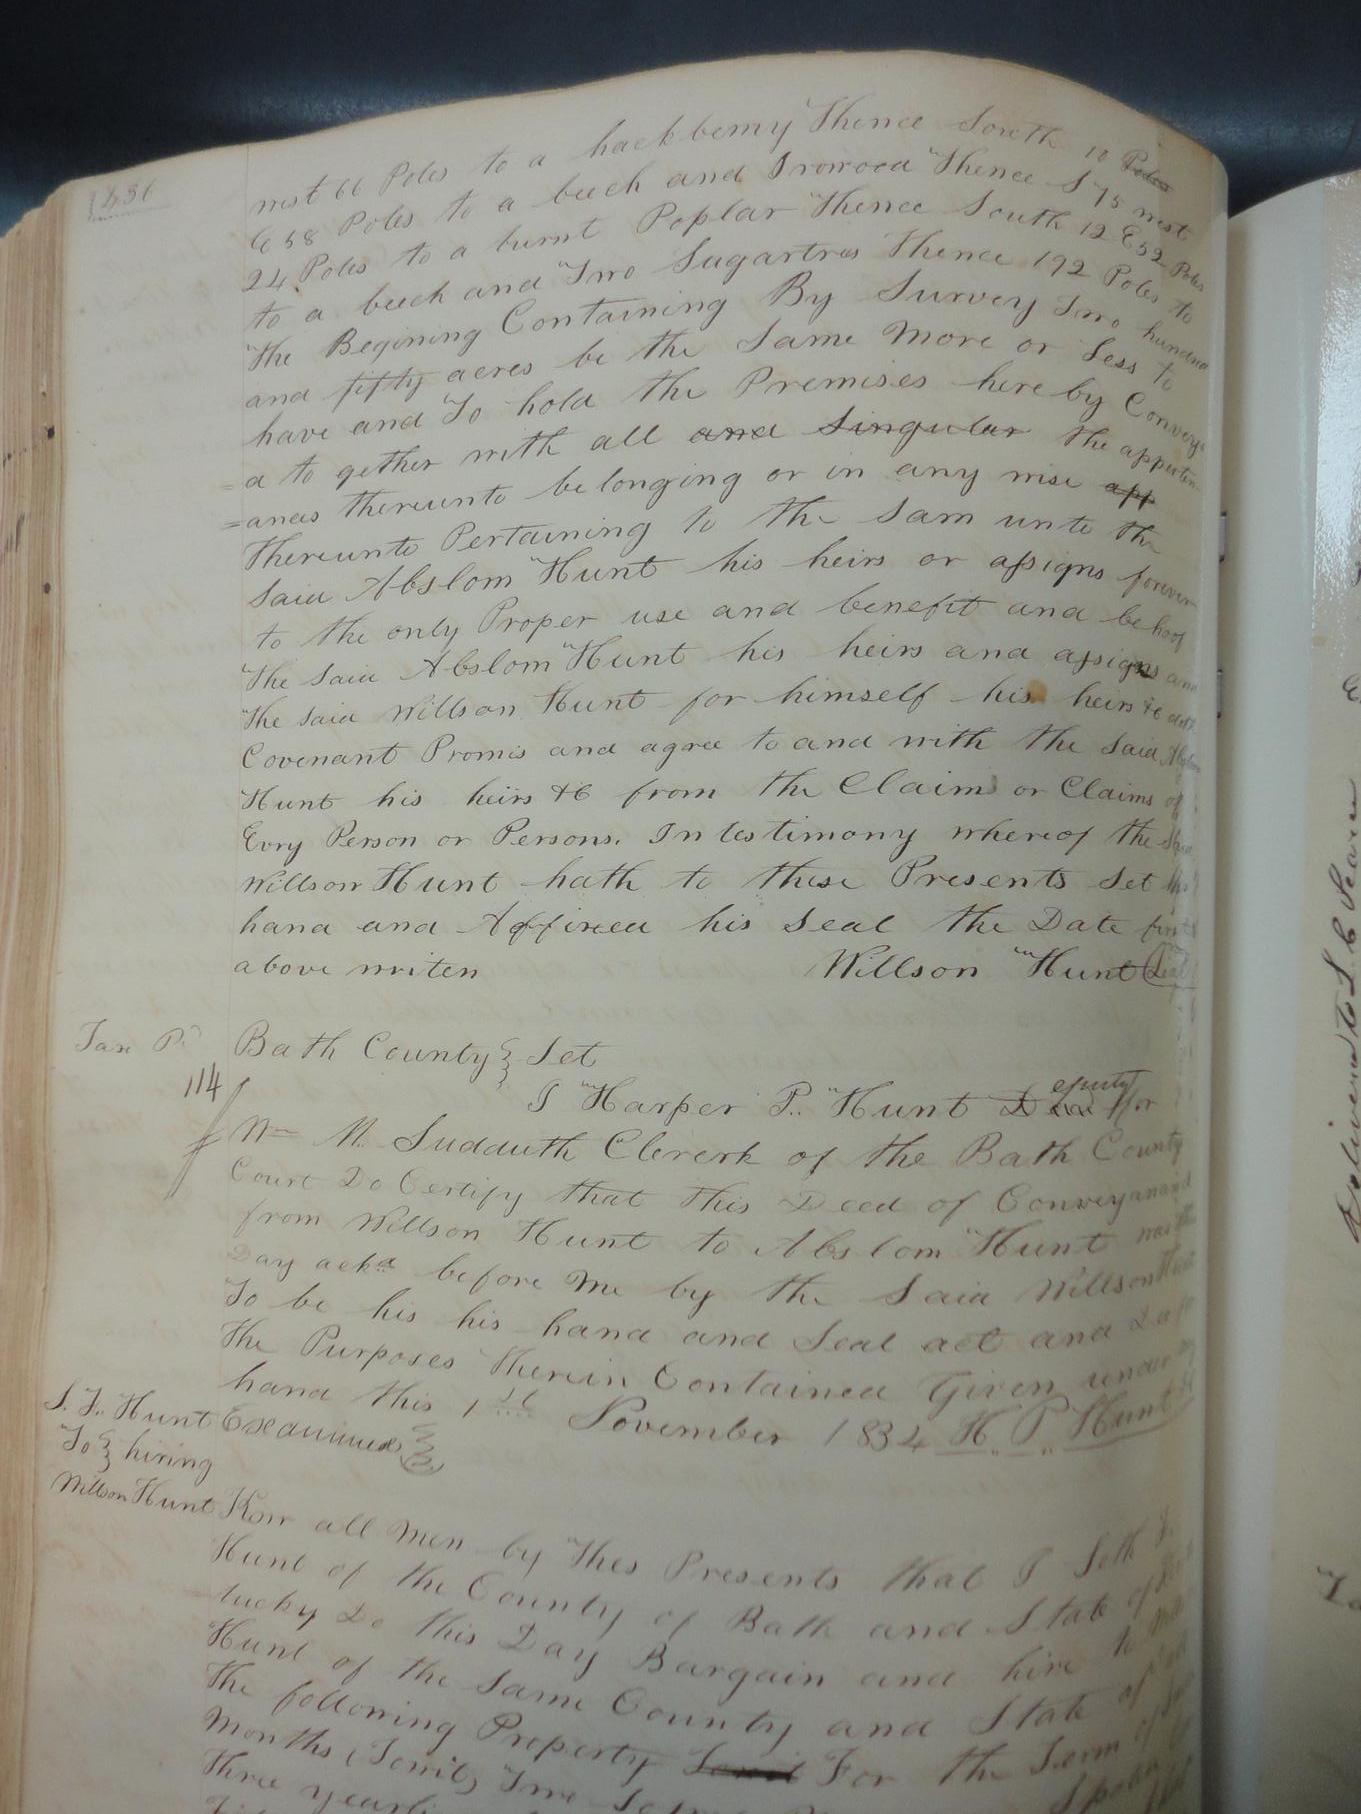 436
west 66 Poles to a hackberry Thence South 10 Poles
E 58 Poles to a beech and Irowood Thence S 75 west
24 Poles to a burnt Poplar Thence South 12 E 52 Poles
to a beech and Two Sugartres Thence 192 Poles to
The Begining Containing By Survey Two hundred
and fifty acres be the Same More or Less to
have and To hold the Premises here by Convey
=d to gether with all and Singular the apperten
=ances thereunto belonging or in any wise app
Thereunto Pertaining to the Sam unto the
Said Abslom Hunt his heirs or assigns forever
to the only Proper use and benefit and behoof
The Said Abslom Hunt his heirs and assigns and
The Said Willson Hunt for himself his heirs &c doth
Covenant Promis and agree to and with the Said Abslom
Hunt his heirs &c from the Claim or Claims of
Evry Person or Persons. In testimony whereof the Said
Willson Hunt hath to these Presents Set his
hand and Affixed his Seal the Date first
above writen Willson Hunt Seal
Tax Pd
114
Bath County } Set
I Harper P. Hunt Deputy for
Wm M. Sudduth Clererk of the Bath County
Court Do Certify that this Deed of Conveyanand
from Willson Hunt to Abslom Hunt was this
Day ackd before Me by the Said Willson Hunt
To be his his hand and Seal act and
The Purposes Therein Contained Given under my
hand this 1st November 1834 H. P. Hunt
Examined
S. F. Hunt
To } hiring
Willson Hunt
Know all Men by Thes Presents that I Seth F.
Hunt of the County of Bath and State of Ken
tucky Do this Day Bargain and hire to Will
Hunt of the Same County and State of
The following Property Towit For the Term of
Months (Towit) Two
Three yearli